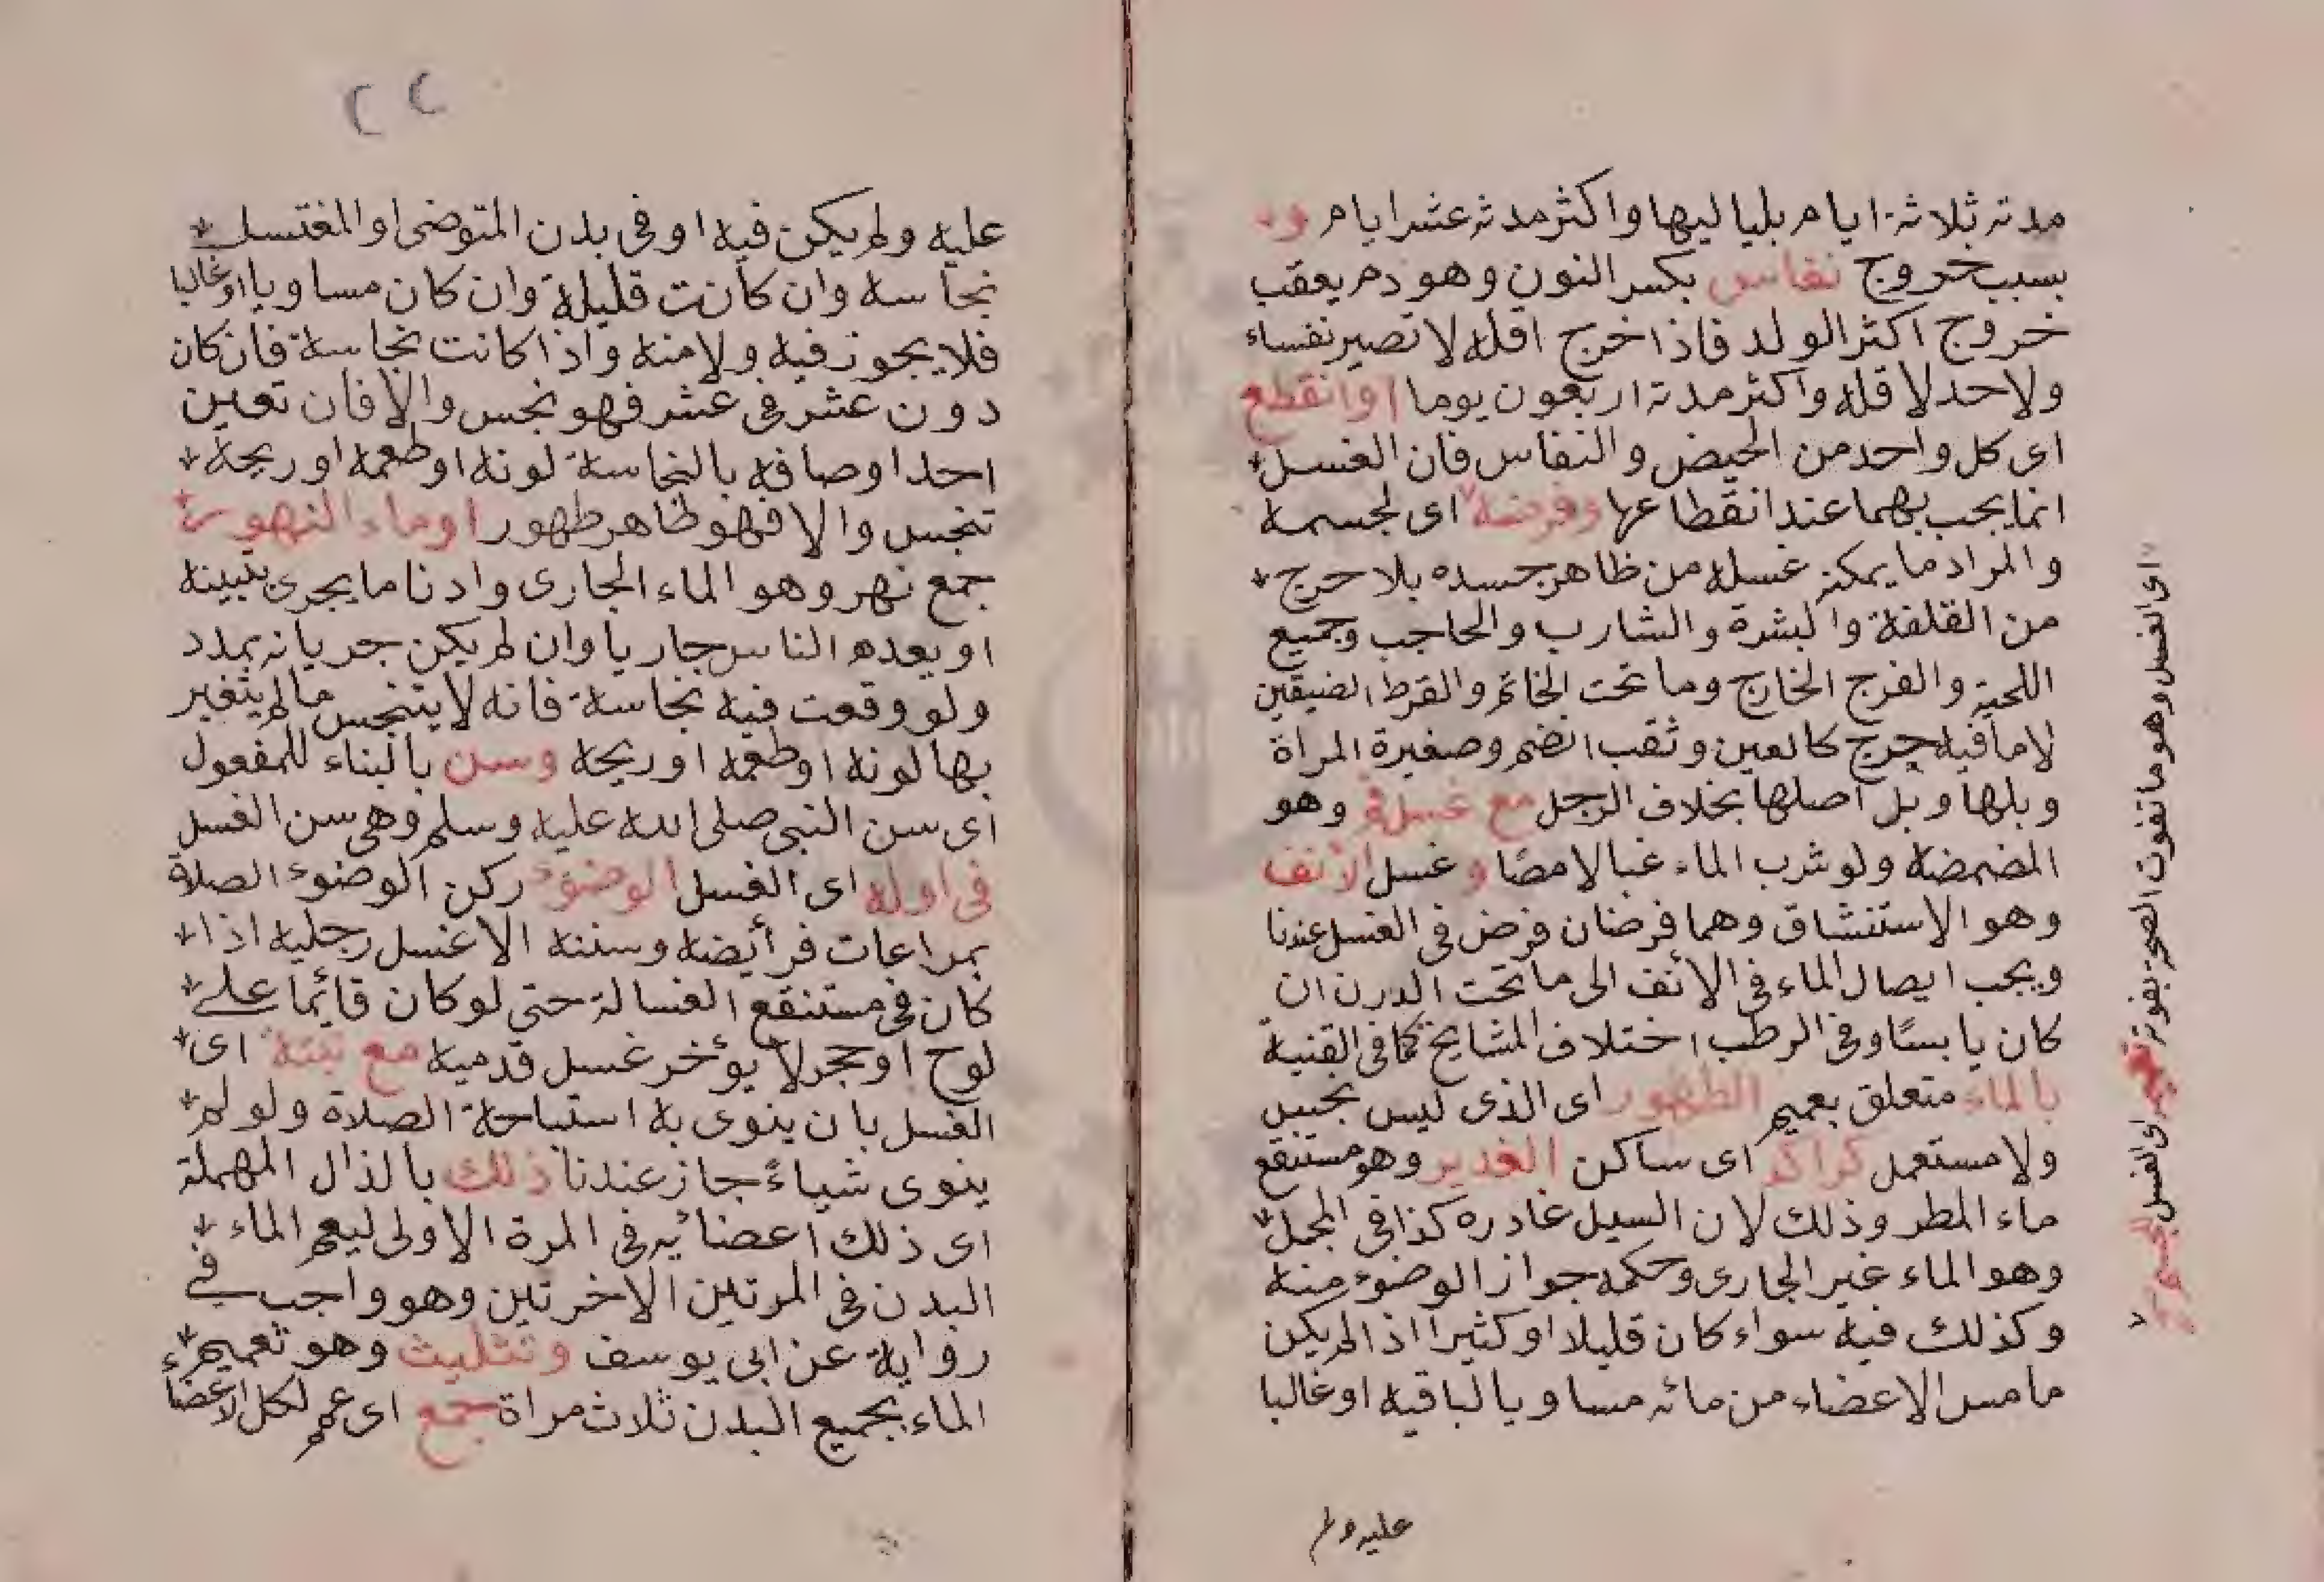 مدته ثلاثة ايام بلياليها واكثر مدته عشرايام و
بسبب خروج نفاس بكسر النون وهو دم يعقب
خروج اكثر الولد فاذا خرج اقله لا تصير نفساء
ولا حد لاقله واكثر مدته اربعون يوما اوانقطع
اى كل واحد من الحيض والنفاس فان الغسل
انما يجب بهما عند انقطاعها وفرضه اى لجسمه
والمراد ما يمكنه غسله من ظاهر جسده بلا حرج
من القلفة والبشرة والشارب والحاجب وجميع
اللحية والفرج الخارج وما تحت الخاتم والقرط الضيقين
لا ما فيه حرج كالعين وثقب انضم وضفيرة المراة
وبلها وبل اصلها بخلاف الرجل مع غسل فم وهو
المضمضه ولو شرب الماء غبا لا مصًا و غسل الانف
وهو الاستنشاق وهما فرضان فرض فى الغسل عندنا
ويجب ايصال الماء فى الأنف الى ما تحت الدرن ان
كان يابسًا وفى الرطب اختلاف المشايخ كما فى القنية
بالماء متعلق بعميم الطهور اى الذى ليس بنجس
ولا مستعمل كراكد اى ساكن الغدير وهو مستنقع
ماء المطر وذلك لان السيل غادره كذا فى المجمل
وهو الماء غير الجارى وحكمه جواز الوضوء منه
وكذلك فيه سواء كان قليلا او كثيرا اذ الم يكن
ما مس الاعضاء من مائه مساويا لباقيه او غالبا
عليه ولم
اى الغسل وهو ما تفوت الصحة بفوته تعميم اى الغسل الجسم
٢٢
عليه ولم يكن فيه او فى بدن المتوضى او المغتسل
نجاسه وان كانت قليلة وان كان مساويا اوغالبا
فلا يجوز فيه ولا منه واذا كانت نجاسة فان كان
دون عشر فى عشر فهو نجس والا فان تعين
احد اوصافه بالنجاسة لونه او طعمه او ريحه
تنجس والا فهو طاهر طهور او ماء النهور
جمع نهر وهو الماء الجارى وادنا ما يجرى بتبينه
او يعده الناس جاريا وان لم يكن جريانه بمدد
ولو وقعت فيه نجاسة فانه لا يتنجس ما لم يتغير
بها لونه او طعمه او ريحه وسن بالبناء للمفعول
اى سن النبى صلى الله عليه وسلم وهى سن الغسل
فى اوله اى الغسل الوضوء ركن الوضوء الصلاة
بمراعات فرأيضه وسننه الا غسل رجليه اذا
كان فى مستنقع الغسالة حتى لو كان قائما على
لوح او حجر لا يؤخر غسل قدميه مع نيته اى
الغسل بان ينوى به استباحة الصلاة ولو لم
ينوى شياءً جاز عندنا ذلك بالذال المهملة
اى ذلك اعضائه فى المرة الاولى ليعم الماء
البدن فى المرتين الاخرتين وهو واجب فى
رواية عن ابى يوسف وتثليث وهو تعميم
الماء بجميع البدن ثلاث مراة جمع اى عم لكل الاعضاء